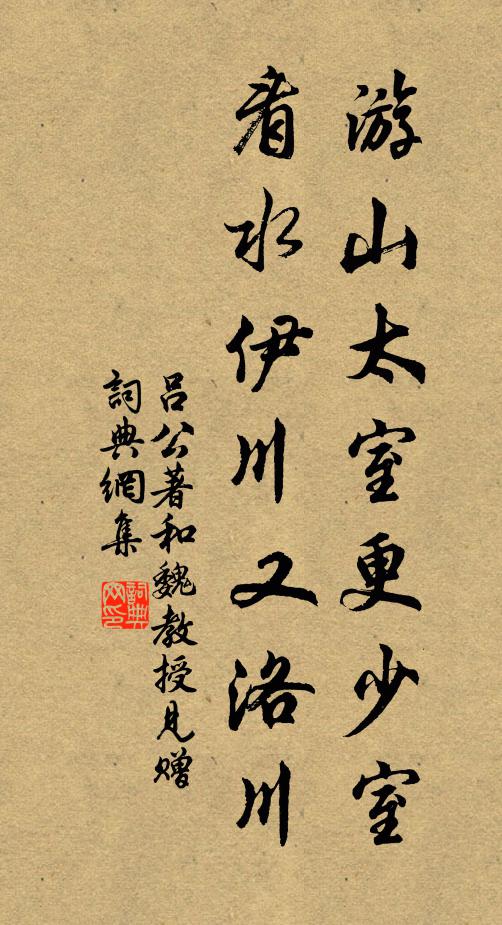 游山太室更少室
看水伊川又洛川
吕公著和魏教授見贈
詞典網集
詞典网印